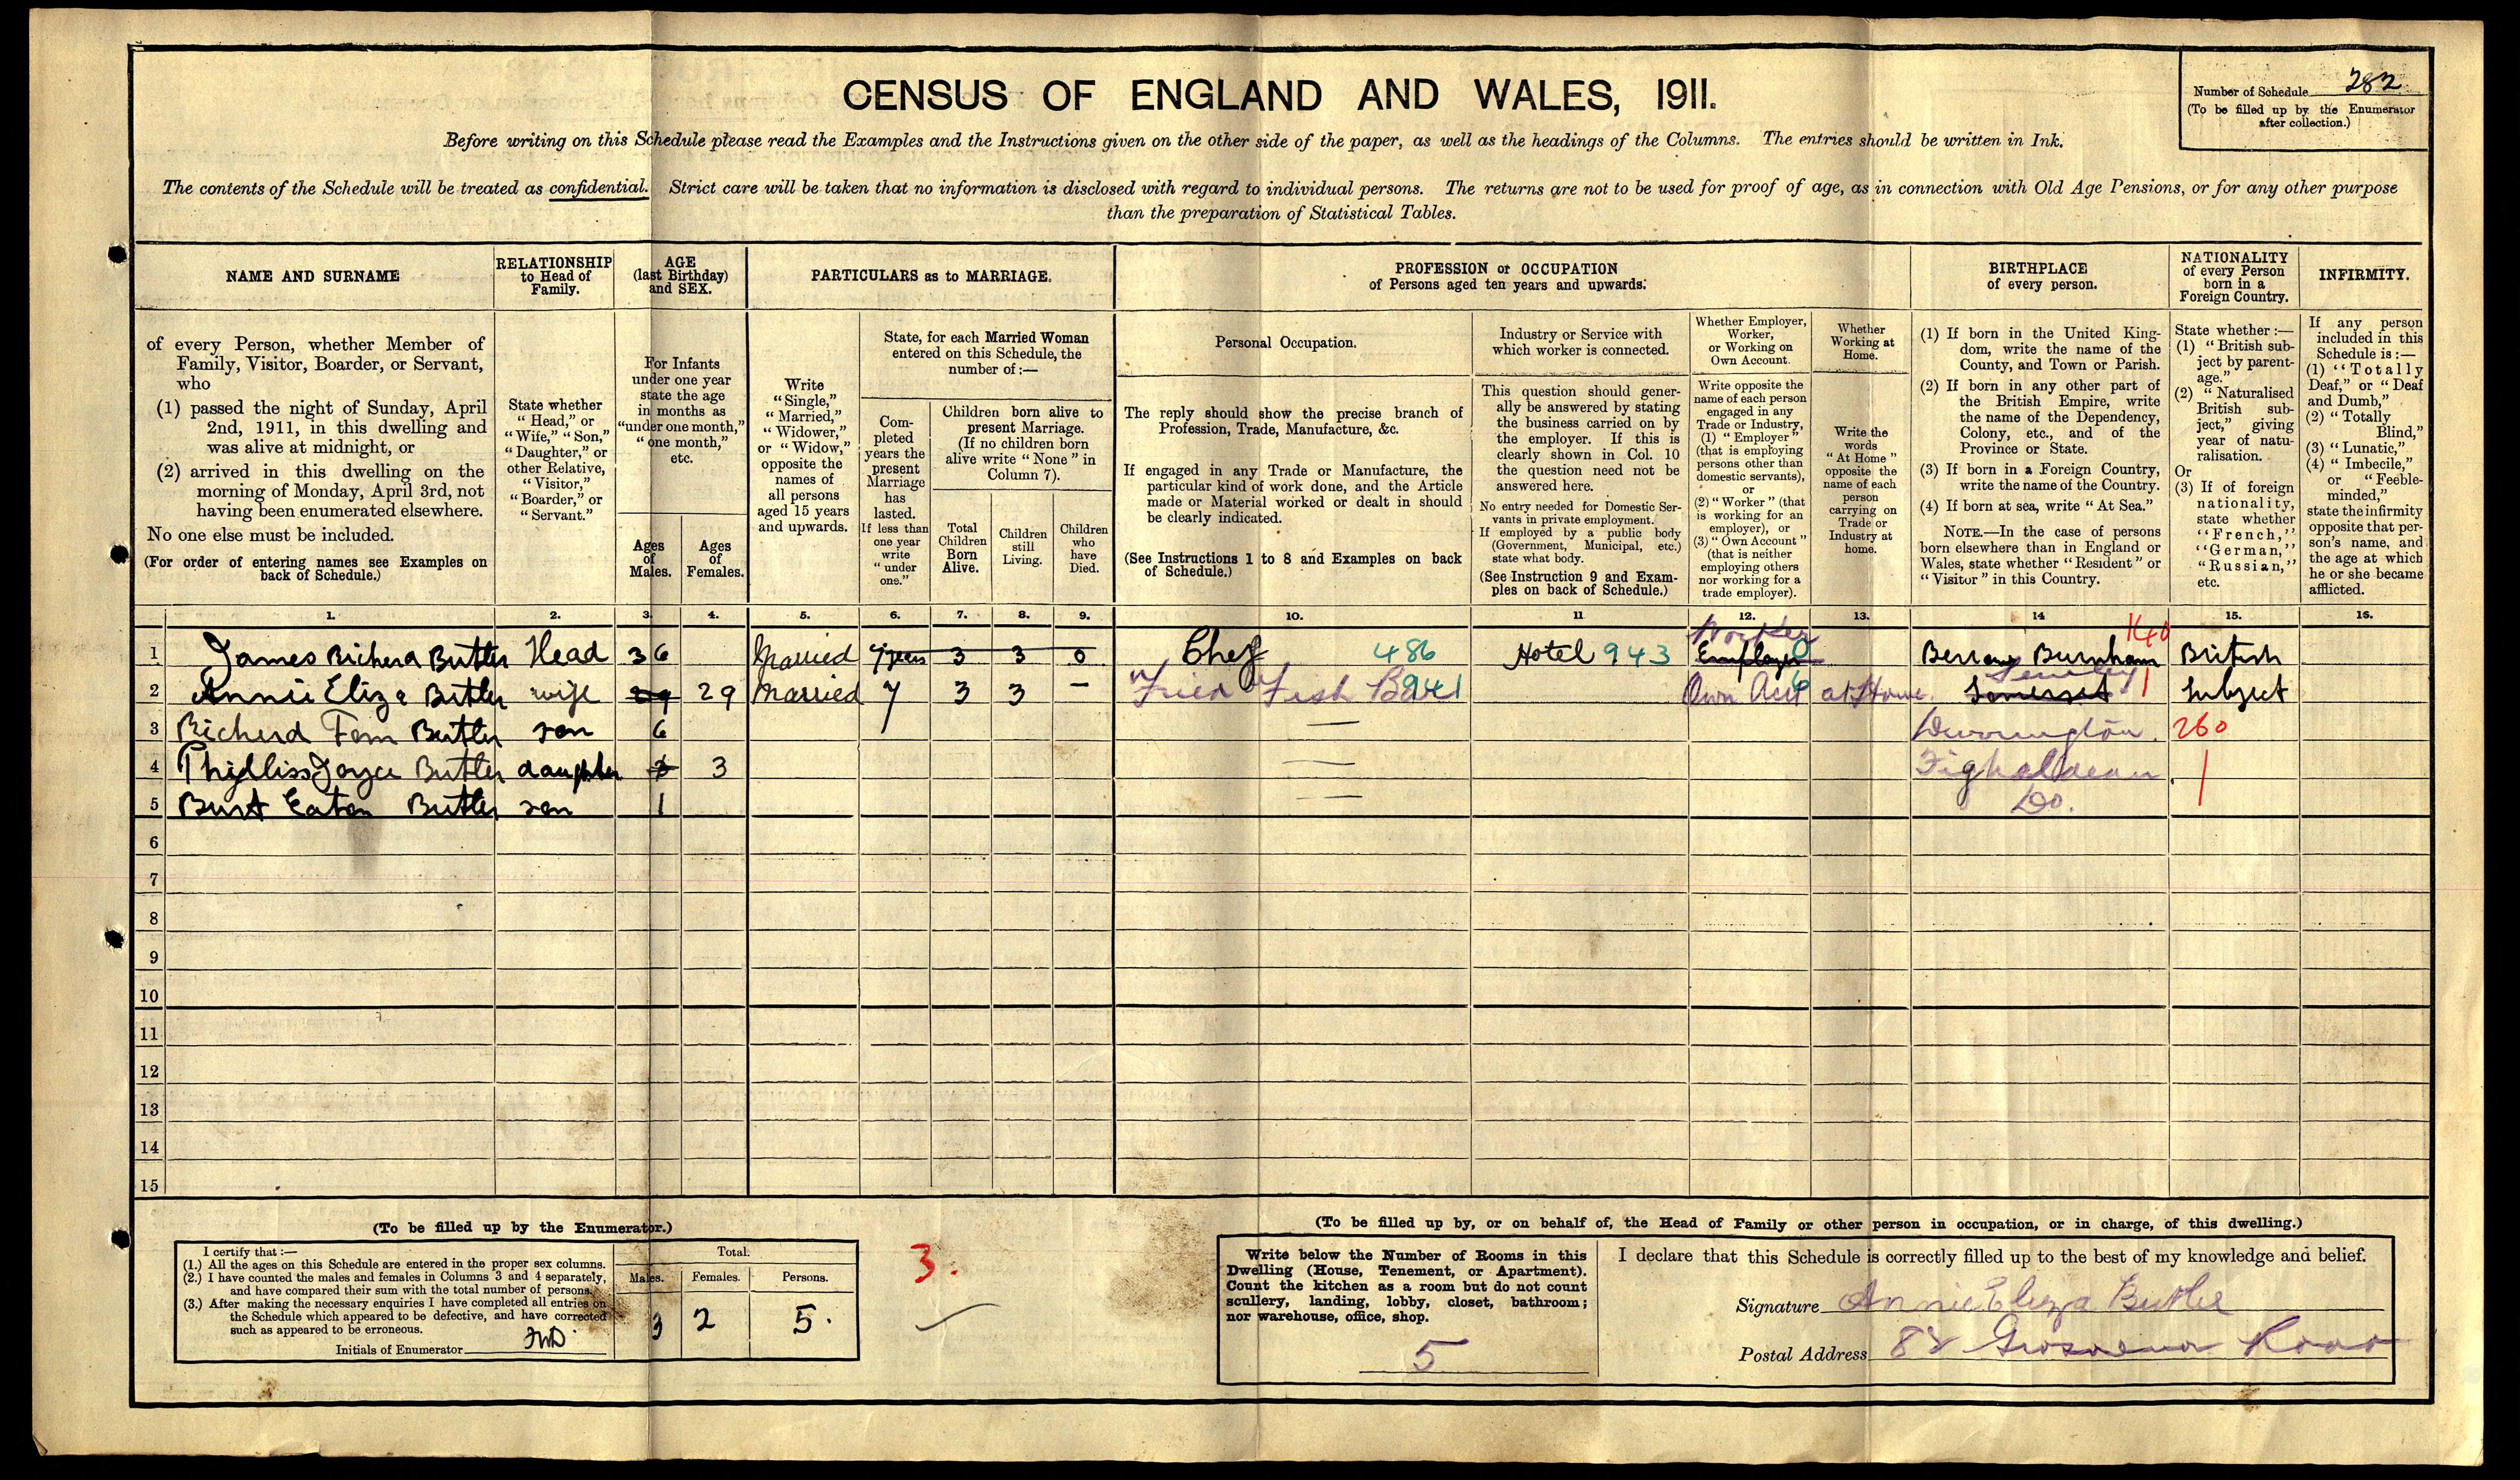 CENSUS OF ENGLAND AND WALES, 1911.
Number of Schedule 282
(To be filled up by the Enumerator
after collection.)
Before writing on this Schedule please read the Examples and the Instructions given on the other side of the paper, as well as the headings of the Columns. The entries should be written in Ink.
The contents of the Schedule will be treated as confidential. Strict care will be taken that no information is disclosed with regard to individual persons. The returns are not to be used for proof of age, as in connection with Old Age Pensions, or for any other purpose
than the preparation of Statistical Tables.
NAME AND SURNAME
of every Person, whether Member of
Family, Visitor, Boarder, or Servant,
who
(1) passed the night of Sunday, April
2nd, 1911, in this dwelling and
was alive at midnight, or
(2) arrived in this dwelling on the
morning of Monday, April 3rd, not
having been enumerated elsewhere.
No one else must be included.
(For order of entering names see Examples on
back of Schedule.)
RELATIONSHIP
to Head of
Family.
State whether
"Head," or
"Wife," "Son,"
"Daughter," or
other Relative,
"Visitor,"
"Boarder," or
"Servant."
AGE
(last Birthday)
and SEX.
For Infants
under one year
state the age
in months as
"under one month,"
"one month,"
etc.
Ages
of
Males.
Ages
of
Females.
PARTICULARS as to MARRIAGE.
Write
"Single,"
"Married,"
"Widower,"
or "Widow,"
opposite the
names of
all persons
aged 15 years
and upwards.
State, for each Married Woman
entered on this Schedule, the
number of:—
Com-
pleted
years the
present
Marriage
has
lasted.
If less than
one year
write
"under
one."
Children born alive to
present Marriage.
(If no children born
alive write "None" in
Column 7).
Total
Children
Born
Alive.
Children
still
Living.
Children
who
have
Died.
PROFESSION or OCCUPATION
of Persons aged ten years and upwards.
Personal Occupation.
The reply should show the precise branch of
Profession, Trade, Manufacture, &c.
If engaged in any Trade or Manufacture, the
particular kind of work done, and the Article
made or Material worked or dealt in should
be clearly indicated.
(See Instructions 1 to 8 and Examples on back
of Schedule.)
Industry or Service with
which worker is connected.
This question should gener-
ally be answered by stating
the business carried on by
the employer. If this is
clearly shown in Col. 10
the question need not be
answered here.
No entry needed for Domestic Ser-
vants in private employment.
If employed by a public body
(Government, Municipal, etc.)
state what body.
(See Instruction 9 and Exam-
ples on back of Schedule.)
Whether Employer,
Worker,
or Working on
Own Account.
Write opposite the
name of each person
engaged in any
Trade or Industry,
(1) "Employer"
(that is employing
persons other than
domestic servants),
or
(2) "Worker" (that
is working for an
employer), or
(3) "Own Account"
(that is neither
employing others
nor working for a
trade employer).
Whether
Working at
Home.
Write the
words
"At Home"
opposite the
name of each
person
carrying on
Trade or
Industry at
home.
BIRTHPLACE
of every person.
(1) If born in the United King-
dom, write the name of the
County, and Town or Parish.
(2) If born in any other part of
the British Empire, write
the name of the Dependency,
Colony, etc., and of the
Province or State.
(3) If born in a Foreign Country,
write the name of the Country.
(4) If born at sea, write "At Sea."
NOTE.—In the case of persons
born elsewhere than in England or
Wales, state whether "Resident" or
"Visitor" in this Country.
NATIONALITY
of every Person
born in a
Foreign Country.
State whether:—
(1) "British sub-
ject by parent-
age."
(2) "Naturalised
British sub-
ject," giving
year of natu-
ralisation.
Or
(3) If of foreign
nationality,
state whether
"French,"
"German,"
"Russian,"
etc.
INFIRMITY.
If any person
included in this
Schedule is:—
(1) "Totally
Deaf," or "Deaf
and Dumb,"
(2) "Totally
Blind,"
(3) "Lunatic,"
(4) "Imbecile,"
or "Feeble-
minded,"
state the infirmity
opposite that per-
son's name, and
the age at which
he or she became
afflicted.
1. 2. 3. 4. 5. 6. 7. 8. 9. 10. 11 12. 13. 14 15. 16.
Worker 140
1 James Richerd Butler Head 36 Married 7 years 3 3 0 Chef 486 Hotel 943 Employer 0 Berrow Burnham British
2 Annie Eliza Butler wife 29 29 Married 7 3 3 — "Fried Fish Bar" 941 Own Acct 6 at Home. Somerset 1 Subject
3 Richerd Fem Butler son 6 — Durrington. 260
4 Phylliss Joyce Butler daughter 3 3 — Fighaldean 1
5 Burt Eaton Butler son 1 — Do.
6
7
8
9
10
11
12
13
14
15
(To be filled up by the Enumerator.)
I certify that:—
(1.) All the ages on this Schedule are entered in the proper sex columns.
(2.) I have counted the males and females in Columns 3 and 4 separately,
and have compared their sum with the total number of persons.
(3.) After making the necessary enquiries I have completed all entries on
the Schedule which appeared to be defective, and have corrected
such as appeared to be erroneous.
Initials of Enumerator
Total.
Males. Females. Persons.
3 2 5.
3.
(To be filled up by, or on behalf of, the Head of Family or other person in occupation, or in charge, of this dwelling.)
Write below the Number of Rooms in this
Dwelling (House, Tenement, or Apartment).
Count the kitchen as a room but do not count
scullery, landing, lobby, closet, bathroom;
nor warehouse, office, shop.
5
I declare that this Schedule is correctly filled up to the best of my knowledge and belief.
Signature Annie Eliza Butler
Postal Address 82 Grosvenor Road